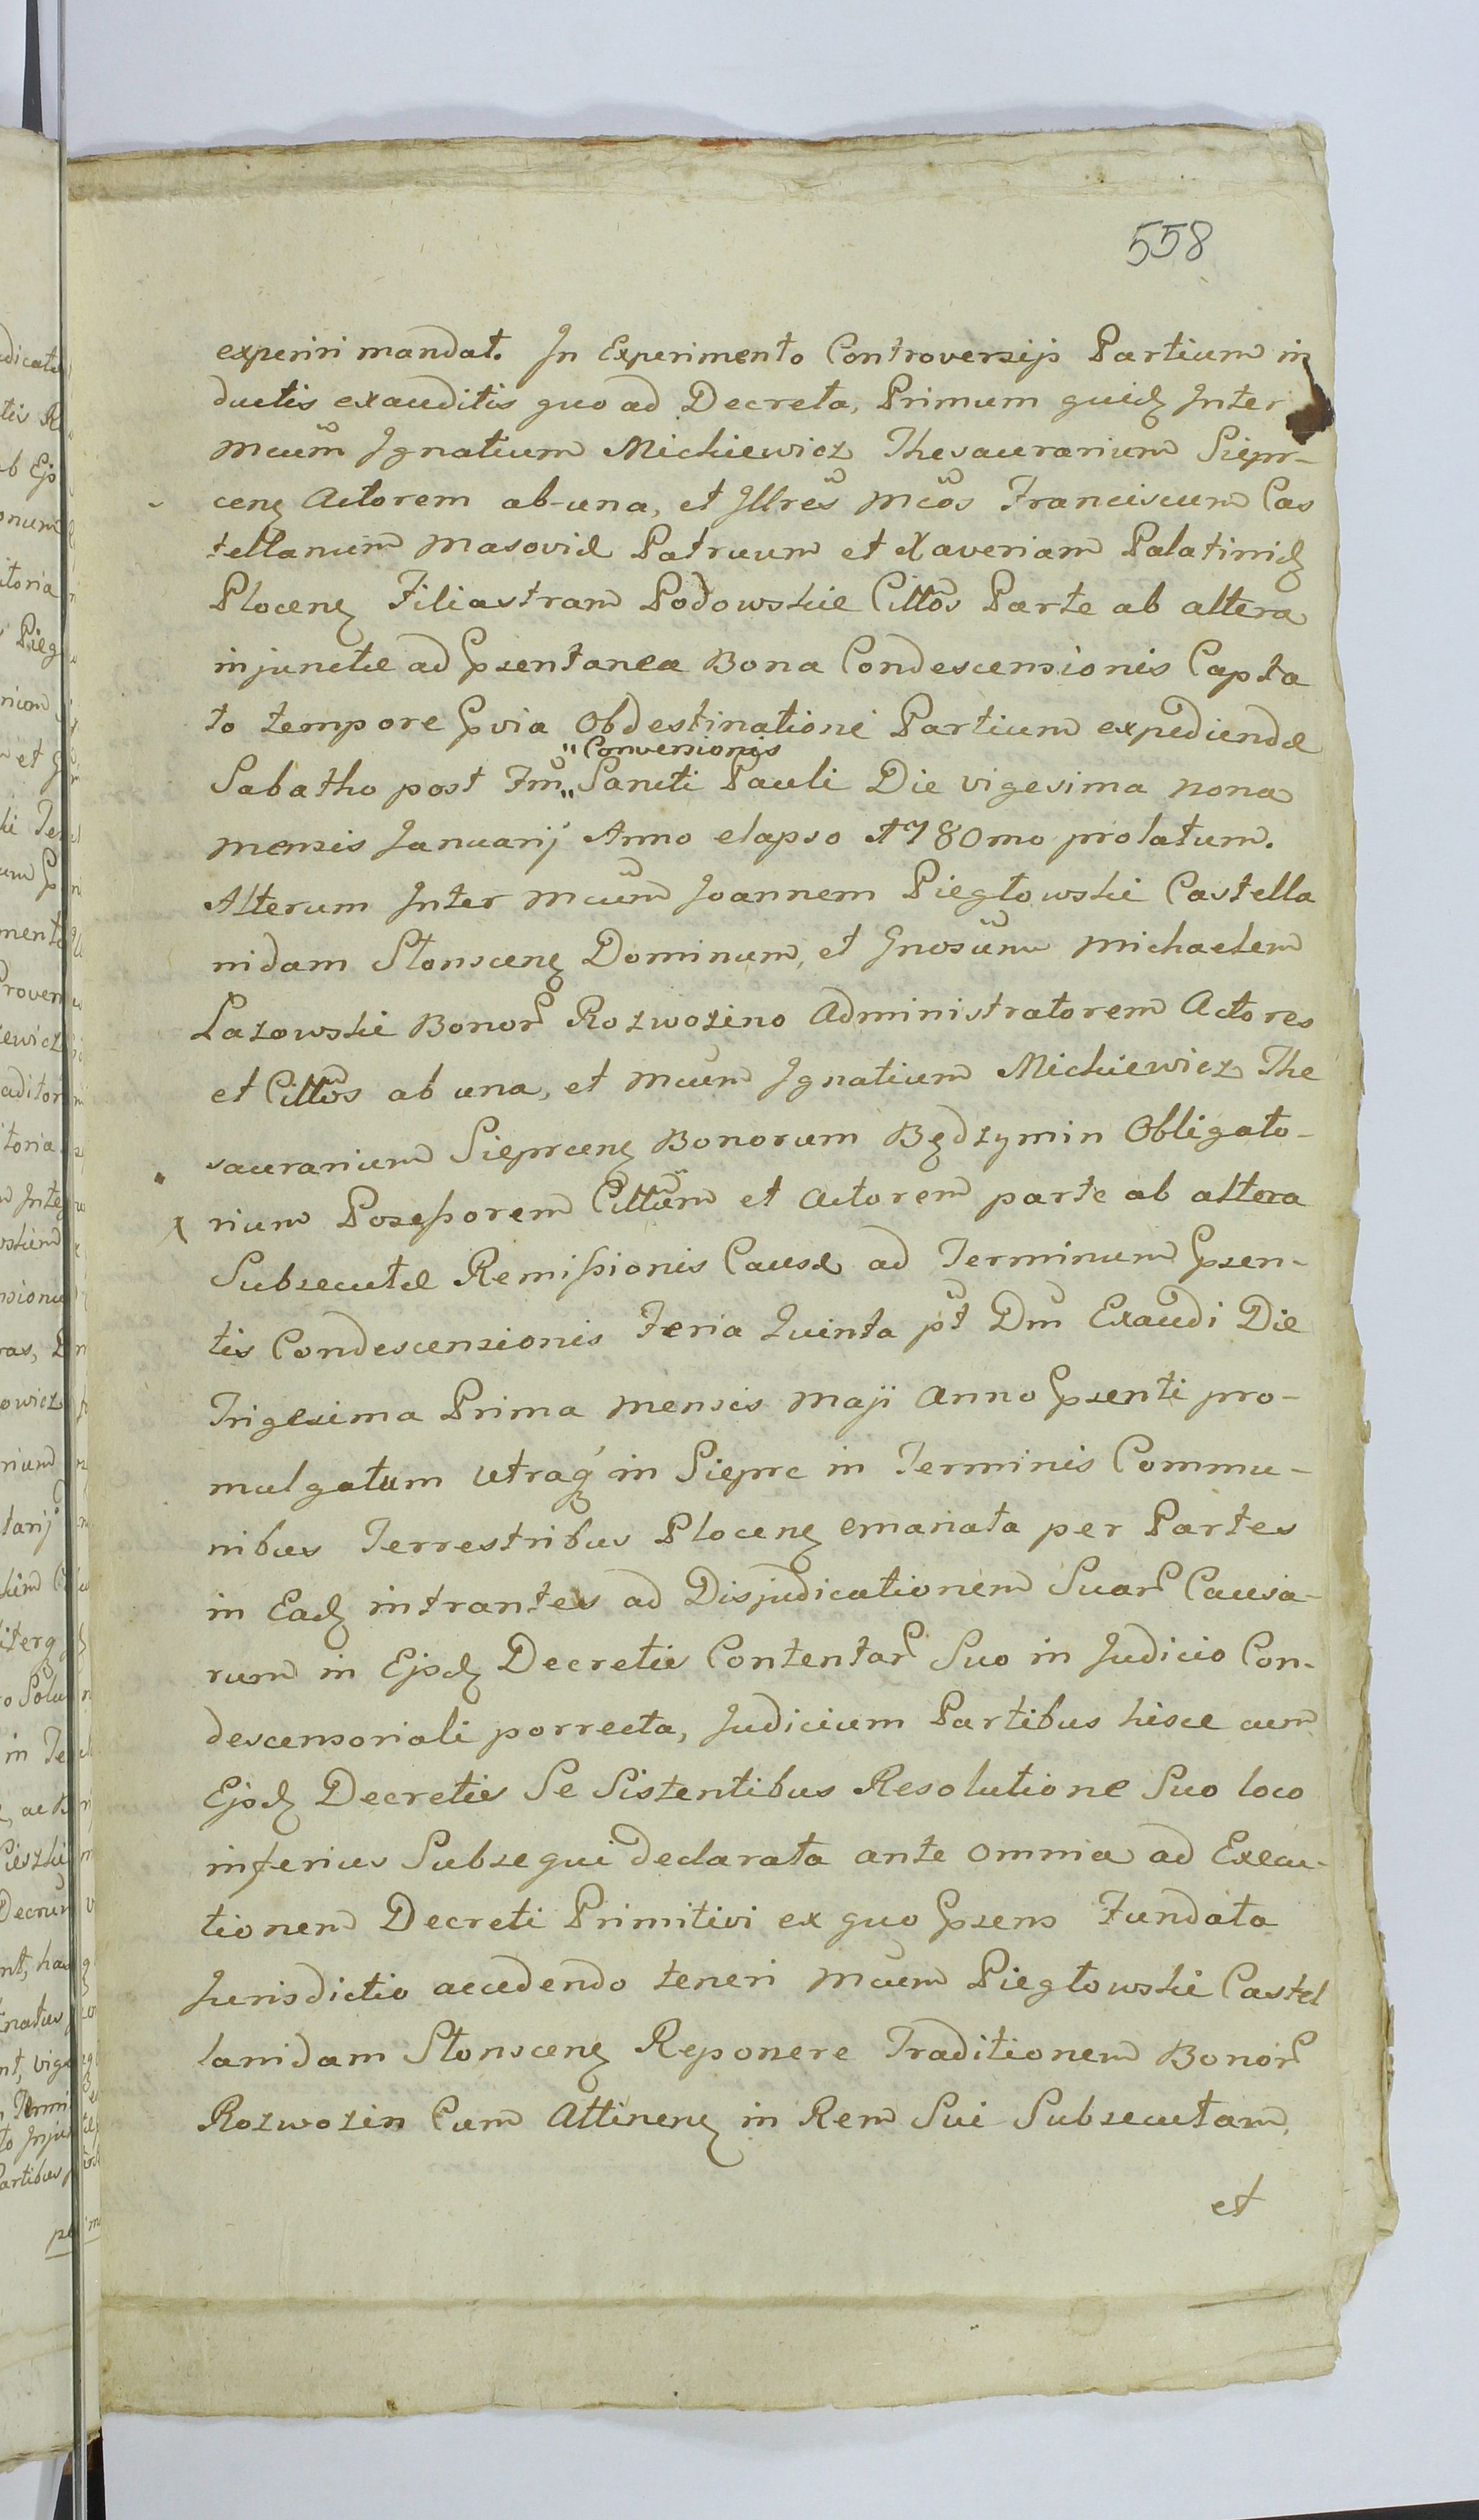 558
experiri mandat. In Experimento Controversijs Partium in
ductis exauditis quo ad Decreta, Primum quidȝ Inter
Mcum̃ Ignatium Mickiewicz Thesaurarium Sieprcenȝ
cenȝ Actorem ab-una, et Illres̃ Mcos̃ Franciscum Cas
tellanum Masoviæ Patruum et Xaveriam Palatinidȝ
Plocenȝ Filiastram Podowskie Cittos̃ Parte ab altera
injunctæ ad Psentanea Bona Condescensionis Capta
to tempore Pvia Obdestinatione Partium expediendæ
„Conversionis
Sabatho post Fm̃ „ Sancti Pauli Die vigesima nona
mensis Januarij Anno elapso 1780mo prolatum.
Alterum Inter Mcum̃ Joannem Piegłowski Castella
nidam Słonscenȝ Dominum, et Gnosum̃ Michaelem
Lazowski Bonor Rozwozino Administratorem Actores
et Cittos̃ ab una, et Mcum̃ Ignatium Mickiewicz The
saurarium Sieprcenȝ Bonorum Będzymin Obligato-
rium Possessorem Cittum̃ et Actorem parte ab altera
Subsecutæ Remissionis Causæ ad Terminum Psen-
tis Condescensionis Feria Quinta pt̃ Dm̃ Exaudi Die
Trigesima Prima Mensis Maji Anno Psenti pro-
mulgatum utraq́ in Sieprc in Terminis Commu-
nibus Terrestribus Plocenȝ emanata per Partes
in Eadȝ intrantes ad Disjudicationem Suar Causa-
rum in Ejsdȝ Decretis Contentar Suo in Judicio Con-
descensoriali porrecta, Judicium Partibus hisce cum
Ejsdȝ Decretis Se Sistentibus Resolutione Suo loco
inferius Subsequi declarata ante omnia ad Execu-
tionem Decreti Primitivi ex quo Psens Fundata
Jurisdictio accedendo teneri Mcum̃ Piegłowski Castel
lanidam Słonscenȝ Reponere Traditionem Bonor
Rozwozin Cum Attinenȝ in Rem Sui Subsecutam,
et